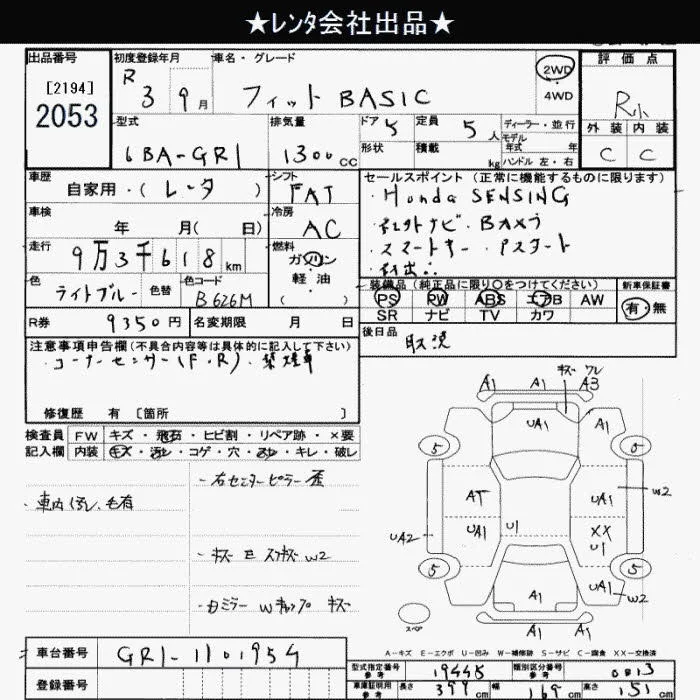 ★レンタ会社出品★
出品番号
[2194]
2053
初度登録年月
R 3 9月
車名・グレード
フィット BASIC
2WD
4WD
評価点
R小
外装 内装
C C
型式
6BA-GR1
排気量
1300cc
ドア 5
定員 5人
形状
積載 kg
ディーラー・並行
モデル年式 年
ハンドル 左・右
車歴
自家用・(レンタ)
シフト
FAT
車検
年 月( 日)
冷房
AC
走行
9万3千618km
燃料
ガソリン
軽油
( )
色
ライトブルー
色替
色コード
B626M
R券 9350円
名変期限 月 日
セールスポイント(正常に機能するものに限ります)
・Honda SENSING
・スマートキー・Pスタート
装備品(純正品に限り○をつけてください)
PS PW ABS エアB AW
SR ナビ TV カワ
新車保証書
有・無
後日品
取説
注意事項申告欄(不具合内容等は具体的に記入して下さい)
・コーナーセンサー(F・R)・禁煙車
修復歴 有 [箇所 ]
検査員記入欄
FW キズ・飛石・ヒビ割・リペア跡・×要
内装 キズ・汚レ・コゲ・穴・スレ・キレ・破レ
・右センターピラー歪
・車内汚レ、毛有
・キズ E スリキズ W2
・左ミラー Wキャップ キズ
キズ ワレ
A1 A1 A3
A1 UA1 A1
5 6
AT UA1 W2
UA2 UA1 U1 XX U1
5 5
UA1 W2
A1
A1 A1
スペア
A-キズ E-エクボ U-凹み W-補修跡 S-サビ C-腐食 XX-交換済
車台番号 GR1-1101954
登録番号
型式指定番号 参考 19448
類別区分番号 参考 0813
車庫証明用 参考 長さ 399cm 幅 169cm 高さ 151cm